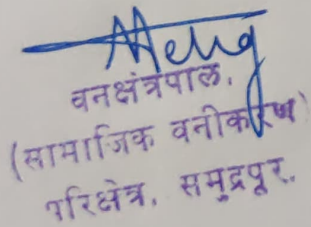 वनक्षेत्रपाल,
(सामाजिक वनीकरण)
परिक्षेत्र, समुद्रपूर.